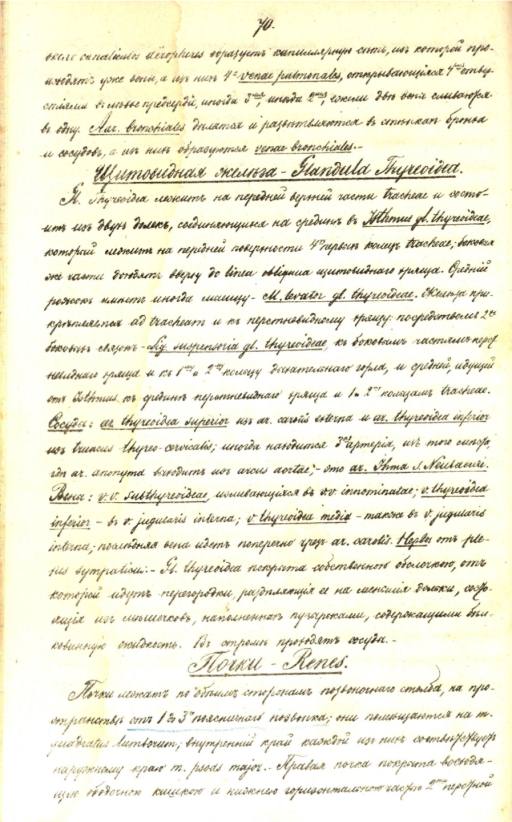 70.
около canaliculi aëropheres образуетъ капиллярную сѣть, изъ которой про-
исходятъ уже вены, а изъ нихъ 4е venae pulmonales, открывающіяся 4мя отвер-
стіями въ лѣвое предсердіе, иногда 3мя, иногда 2мя, ежели двѣ вены сливаются
въ одну. Aar. bronchiales дѣлятся и развѣтвляются въ стѣнкахъ бронхъ
и сосудовъ, а изъ нихъ образуются venae bronchiales.-
Щитовидная железа - Glandula Thyreoidea.
Gl. Thyreoidea лежитъ на передней верхней части tracheae и состо-
итъ изъ двухъ долекъ, соединяющихся на срединѣ въ Isthmus gl. thyreoideae,
который лежитъ на передней поверхности 4хъ первыхъ колецъ tracheae; боковыя
же части доходятъ вверху до linea obliqua щитовиднаго хряща. Средній
рожокъ имѣетъ иногда мышцу - M. levator gl. thyreoideae. Железа при-
крѣпляется ad tracheam и къ перстневидному хрящу посредствомъ 2хъ
боковыхъ связокъ - Lig. suspensoria gl. thyreoideae, къ боковымъ частямъ перст-
невиднаго хряща и къ 1му и 2му кольцу дыхательнаго горла, и средней, идущей
отъ Isthmus къ срединѣ перстневиднаго хряща и 1 и 2му кольцамъ tracheae.
Сосуды: ar. thyreoidea superior изъ ar. carotis externa и ar. thyreoidea inferior
изъ truncus thyreo-cervicalis; иногда находится 3я артерія, изъ того
гдѣ ar. anonyma выходитъ изъ arcus aortae; - это ar. Ima s. Neubaueri.
Вены: v.v. subthyreoideae, изливающіяся въ v.v. innominatae; v. thyreoidea
inferior - въ v. jugularis interna; v. thyreoidea media - также въ v. jugularis
interna; послѣдняя вена идетъ поперечно чрезъ ar. carotis. Нервы отъ ple-
xus sympathici. - Gl. thyreoidea покрыта собственною оболочкою, отъ
которой идутъ перегородки, раздѣляющія ее на мелкія дольки, состо-
ящія изъ мѣшечковъ, наполненныхъ пузырьками, содержащими бѣл-
ковинную жидкость. Въ строму проходятъ сосуды.-
Почки - Renes.
Почки лежатъ по обѣимъ сторонамъ позвоночнаго столба, на про-
странствѣ отъ 1 до 3го поясничнаго позвонка; они помѣщаются на m.
quadratus lumborum; внутренній край каждой изъ нихъ соотвѣтствуетъ
наружному краю m. psoas major. - Правая почка покрыта восходя-
щею ободочною кишкою и нижнею горизонтальною частью 2мъ перстной